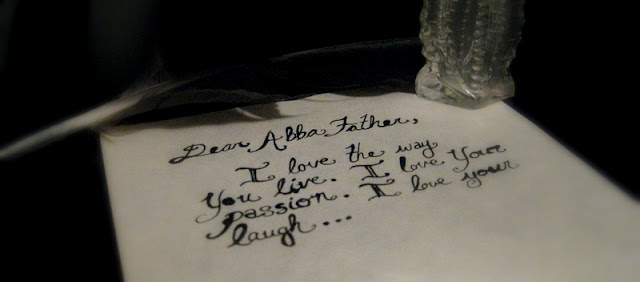 Dear Abba Father,
I love the way
You live. I love Your
passion. I love your
laugh...